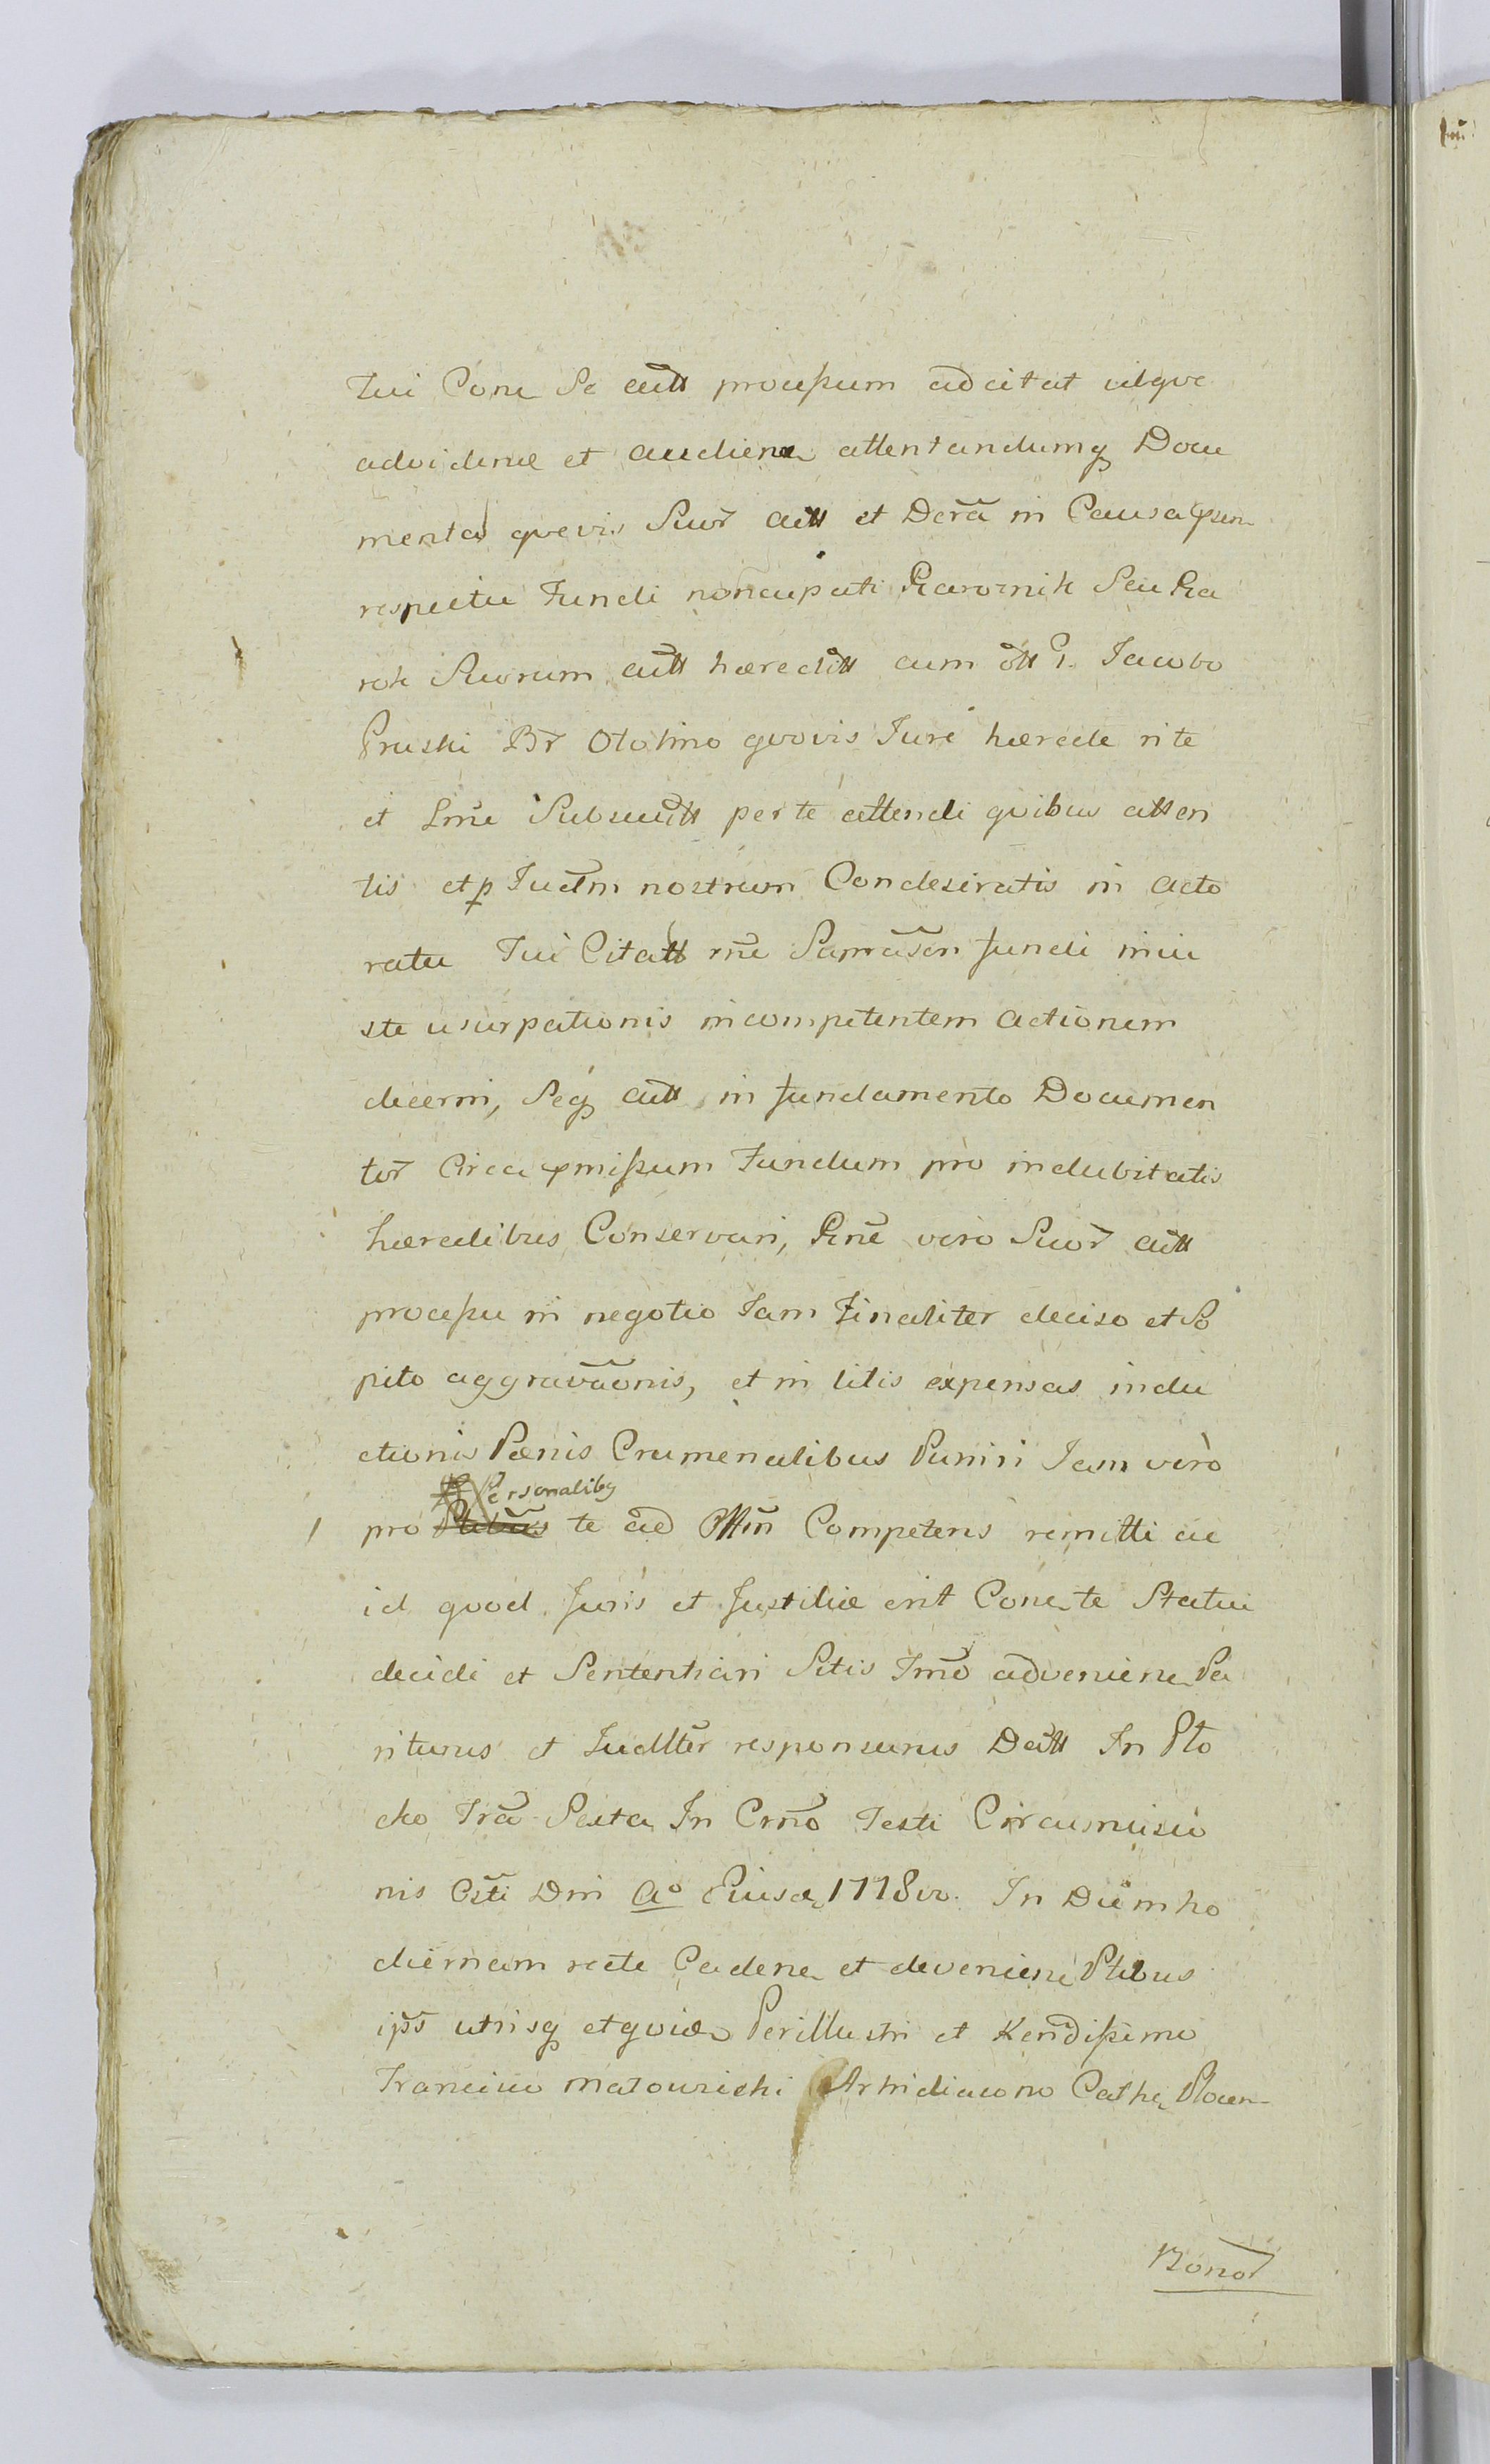 Tui Conu Se autt processum adcitat utque
advidenae et audiena attentandumq Docu
menta quevis Suor autt et Dcra in Causa psen
respectu Fundi noncupati Piarocnik Seu Pia
rek Suorum autt haereditt cum ott G. Jacobo
Pruski Br Ototino quovis Jure haerede rite
et Lme Subsecutt per te attendi quibus atten
tis et p Judm nostrum Condesiratis in acto
ratu Tui Citatt rne Samasen fundi iniu
ste usurpationis incompetentem actionem
decerni, Seq autt in fundamento Documen
tor Circa pmissum Fundum pro indubitatis
haeredibus Conservari, Rne vero Suor autt
processu in negotio Jam Finaliter deciso et So
pito aggravaonis, et in litis expensas indu
ctionis Paenis Crumenalibus Puniri Jam verò
Personalibq
pro te ad Offm Competens remitti ac
id quod Juris et Justitiae erit Cone te Statui
decidi et Sententiari Sitis Tmo adveniena Pa
riturus et Judlter responsurus Datt In Plo
cko Fra Sexta In Crno Festi Circumcisio
nis Csti Dni Ao Eiusd 1778vo. In Diem ho
diernam recte Cadena et deveniena Ptibus
ips utrisq et quidem Perillustri et Rendissimo
Francisco Matowieski Arhidiacono Cathe Plocen
Bonor